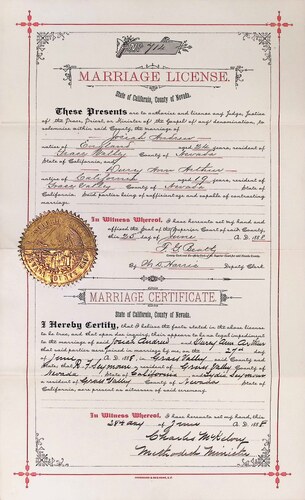 No 714
MARRIAGE LICENSE.
State of California, County of Nevada.
These Presents are to authorize and license any Judge, Justice
of the Peace, Priest, or Minister of the Gospel of any denomination, to
solemnize within said County, the marriage of
Josiah Andrew
native of England aged 24 years, resident of
Grass Valley County of Nevada
State of California, and
Ann Arthur
native of California aged 19 years, resident of
Grass Valley County of Nevada
State of California. Said parties being of sufficient age and capable of contracting
marriage.
In Witness Whereof, I have hereunto set my hand and
affixed the Seal of the Superior Court of said County,
this 25 day of June A. D. 1888
County Clerk and
By Harris Deputy Clerk
MARRIAGE CERTIFICATE.
State of California, County of Nevada.
I Hereby Certify, that I believe the facts stated in the above license
to be true, and that upon due inquiry, there appears to be no legal impediment
to the marriage of said Josiah Andrew and Ann Arthur
that said parties were joined in marriage by me, on the 27th day
of June A. D. 1888, in Grass Valley County and
State; that Seymour a resident of Grass Valley County of
Nevada State of California and Lydia Seymour
a resident of Grass Valley County of Nevada State of
California, are present as witnesses of said ceremony.
In Witness Whereof, I have hereunto set my hand, this
28th day of June A. D. 1888
Charles McKelvey
Methodist Minister